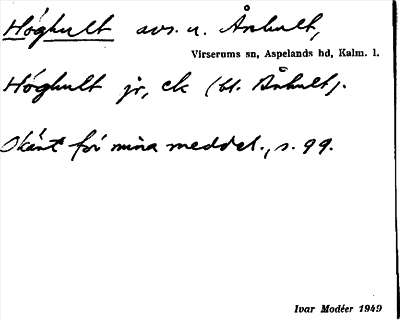 Höghult avs. u. Ånhult,
Virserums sn, Aspelands hd, Kalm. l.
Höghult jr, ck (bl. Ånhult).
Okänt för mina meddel., s. 99.
Ivar Modéer 1949